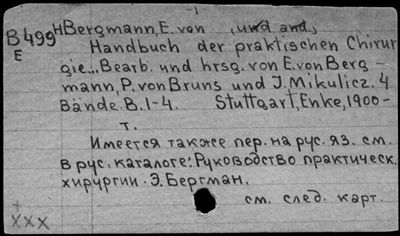 -1-
B499 HBergmann, E. von , und and.,
E
Handbuch der praktischen Chirur
gie... Bearb. und hrsg. von E. von Berg-
mann, P. von Bruns und J. Mikulicz. 4
Bände. B. 1-4. Stuttgart, Enke, 1900-
т.
Имеется также пер. на рус. яз. см.
в рус. каталоге: Руководство практическ.
хирургии. Э. Бергман.
см. след. карт.
+
XXX